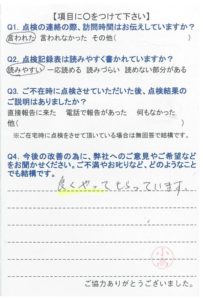 【項目に〇をつけて下さい】
Q1. 点検の連絡の際、訪問時間はお伝えしていますか？
言われた　言われなかった　その他(　　　　　)
Q2. 点検記録表は読みやすく書かれていますか？
読みやすい　一応読める　読みづらい　読めない部分がある
Q3. ご不在時に点検させていただいた後、点検結果の
ご説明はありましたか？
直接報告に来た　電話で報告があった　何もなかった
他(　　　　　)
※ご在宅時に点検をさせて頂いている場合は無回答で結構です。
Q4. 今後の改善の為に、弊社へのご意見やご希望など
をお聞かせください。ご不満やお叱りなど、どのようなこと
でも結構です。
良くやってもらっています。
ご協力ありがとうございました。